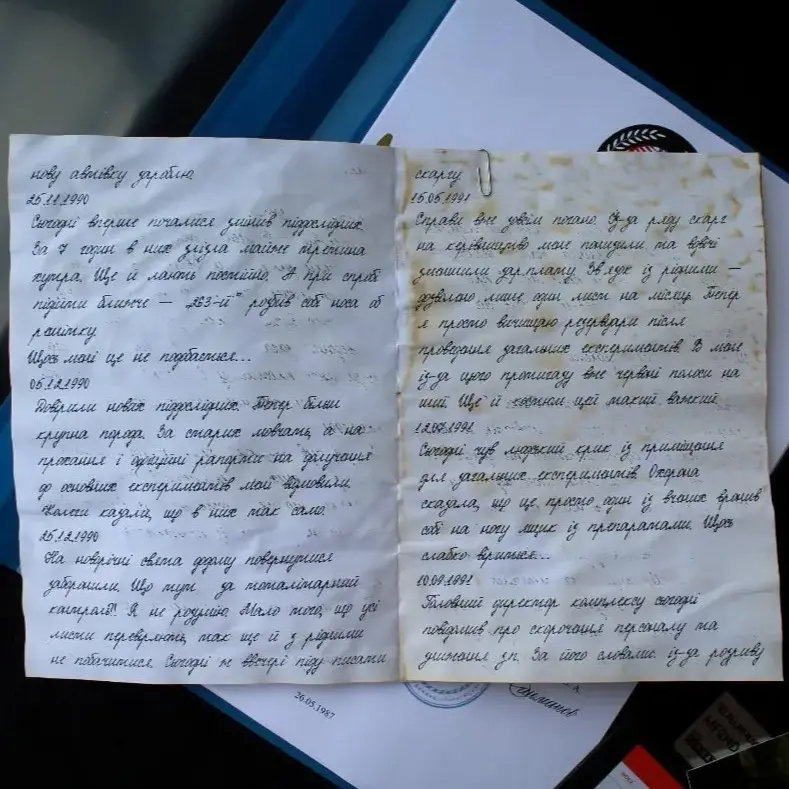 нову автівку зароблю
25.11.1990
Сьогодні вперше почалися зміни в піддослідних.
За 7 годин в них злізла майже третина
хутра. Ще й лають постійно. А при спробі
підійти ближче — "263-й" розбив собі носа об
решітку.
Щось мені це не подобається...
05.12.1990
Довірили нових піддослідних. Тепер більш
крупна порода. За старих мовчать, а на
прохання і офіційні рапорти на долучення
до основних експериментів мені відмовили.
Колеги казали, що в них так само.
25.12.1990
На новорічні свята додому повернутися
заборонили. Що тут за тоталітарний
контроль?! Я не розумію. Мало того, що усі
листи перевіряють, так ще й з рідними
не побачитися. Сьогодні ж ввечері піду писати
скаргу
15.05.1991
Справи вже зовсім погано. Із-за ряду скарг
на керівництво мене понизили та вдвічі
зменшили зарплату. Зв'язок із рідними —
дозволено лише один лист на місяць. Тепер
я просто вичищаю резервуари після
проведення загальних експериментів. В мене
із-за цього протигазу вже червоні полоси на
шиї. Ще й костюм цей такий важкий.
12.07.1991
Сьогодні чув людський крик із приміщення
для загальних експериментів. Охорона
сказала, що це просто один із вчених вронив
собі на ногу ящик із препаратами. Щось
слабко віриться...
10.09.1991
Головний директор комплексу сьогодні
повідомив про скорочення персоналу та
зниження зп. За його словами: із-за розриву
26.05.1987